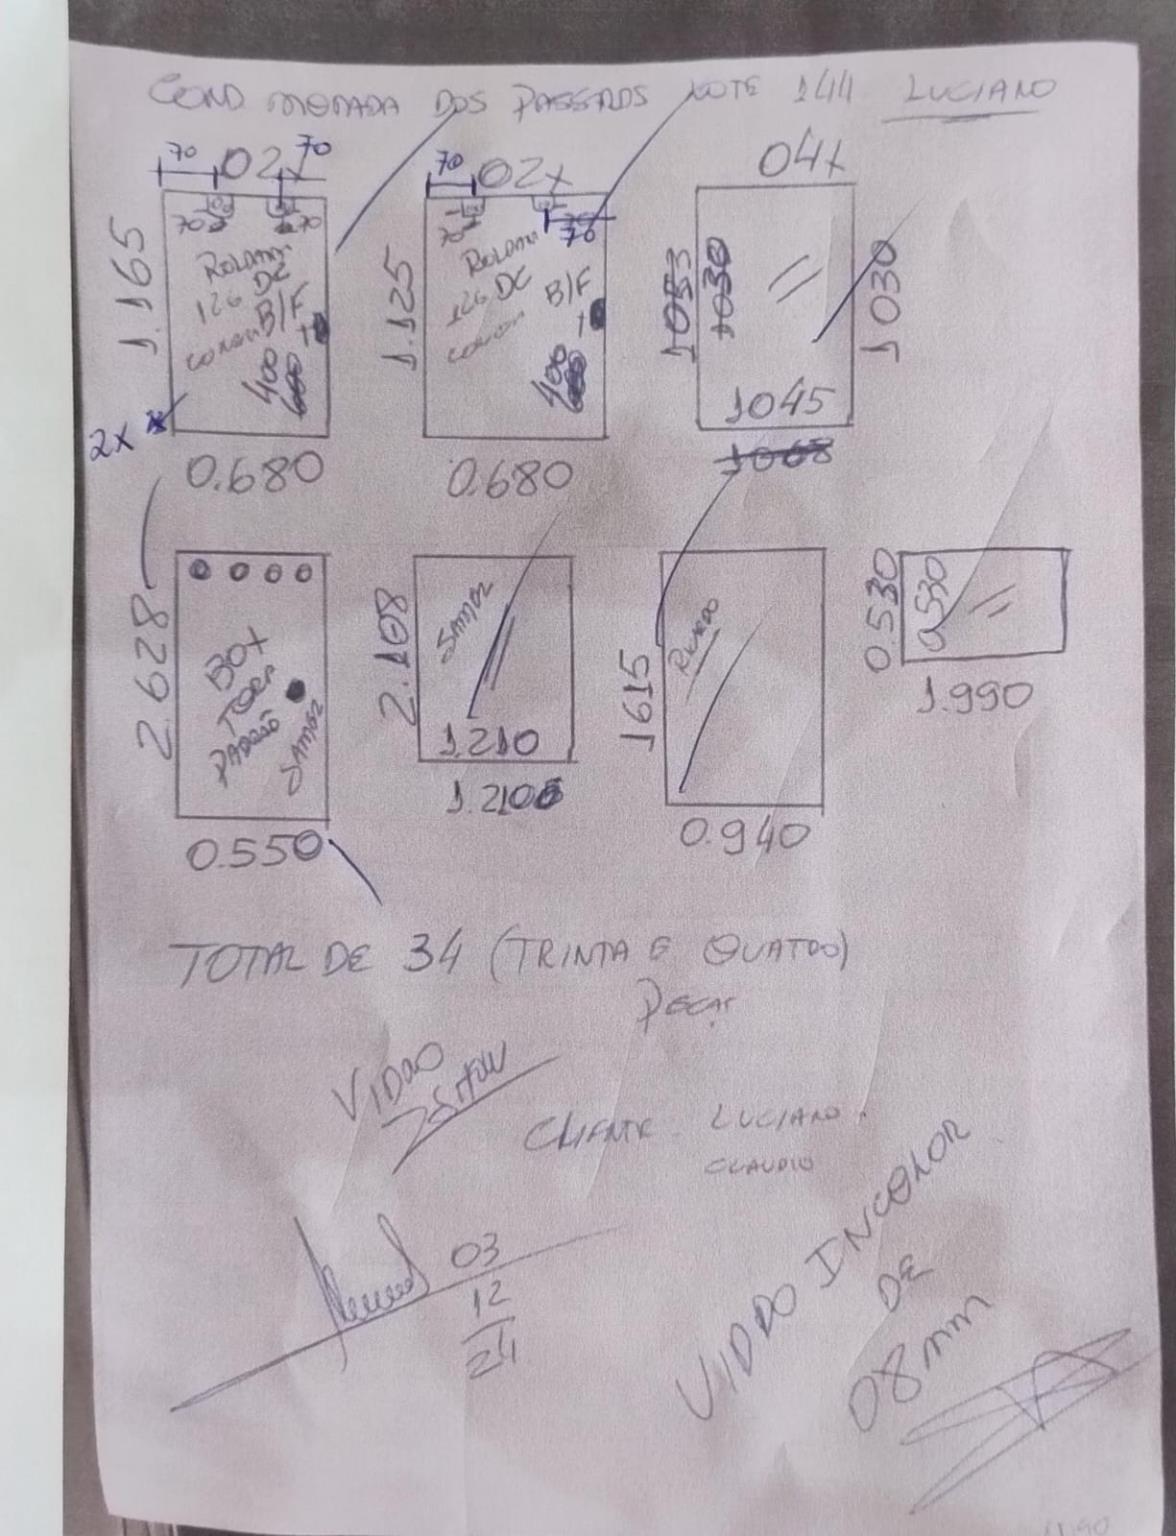 COND MORADA DOS PASSAROS LOTE 144 LUCIANO
70 02x 70
70 70
1.165
ROLDANA
126 DC
B/F
400
2x
0.680
70 02x
70 70
1.125
ROLDANA
126 DC B/F
400
0.680
04x
1053 1030
1030
1045
1068
2.628
BOX
TORRE
PADRÃO
0.550
2.108
1.210
1.210
1615
0.940
0.530
0.530
1.990
TOTAL DE 34 (TRINTA E QUATRO)
PEÇAS
VIDRO
SHOW
CLIENTE LUCIANO
CLAUDIO
03
12
24
VIDRO INCOLOR
DE
08mm